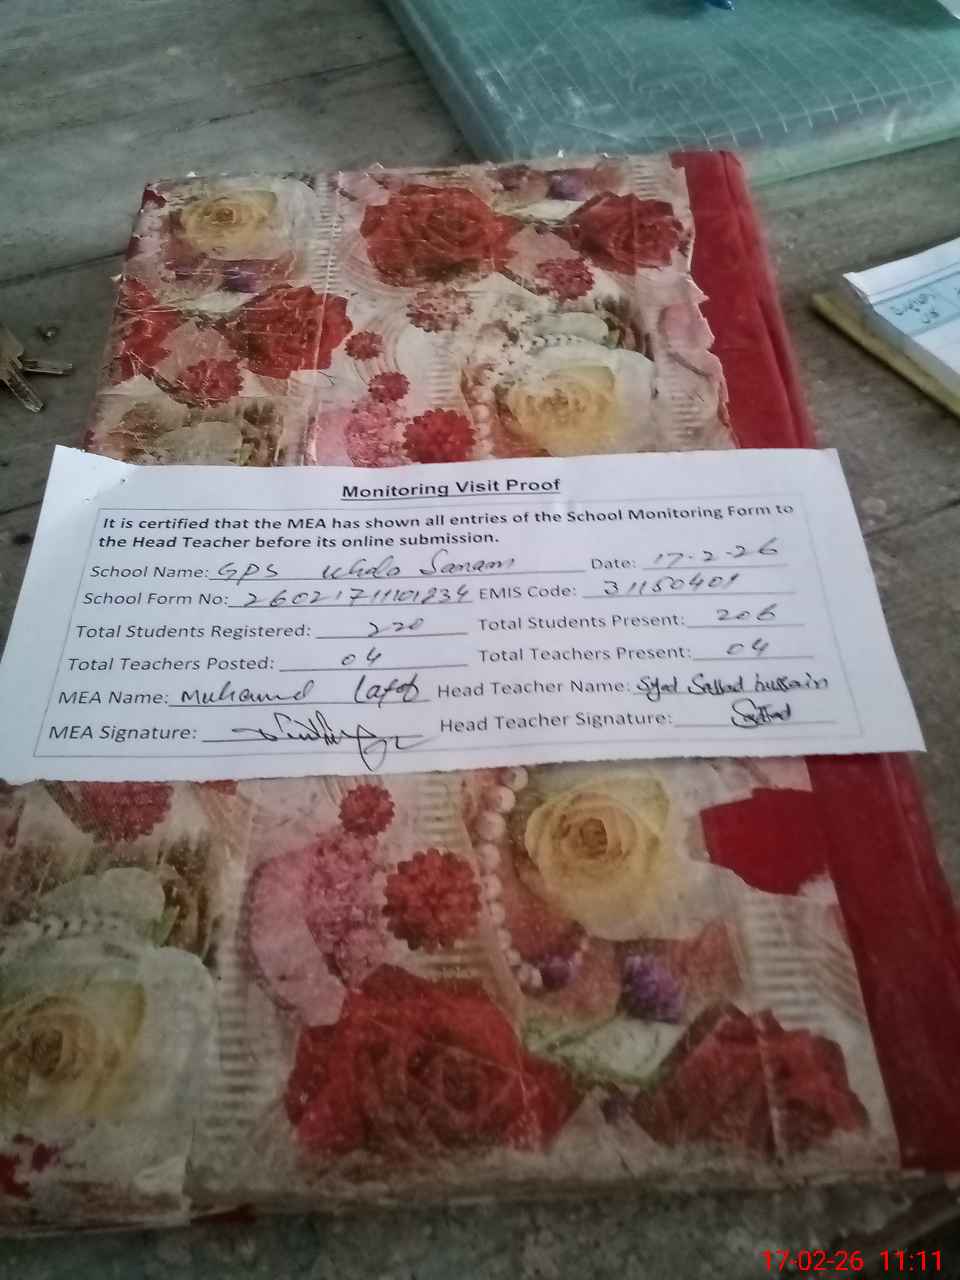 Monitoring Visit Proof
It is certified that the MEA has shown all entries of the School Monitoring Form to
the Head Teacher before its online submission.
School Name: GPS Sanam Date: 17-2-26
School Form No: 26021711101234 EMIS Code: 31150401
Total Students Registered: 220 Total Students Present: 206
Total Teachers Posted: 04 Total Teachers Present: 04
MEA Name: Muhammd Head Teacher Name: Syed Sajjad hussain
MEA Signature: Head Teacher Signature: Sajjad
17-02-26 11:11